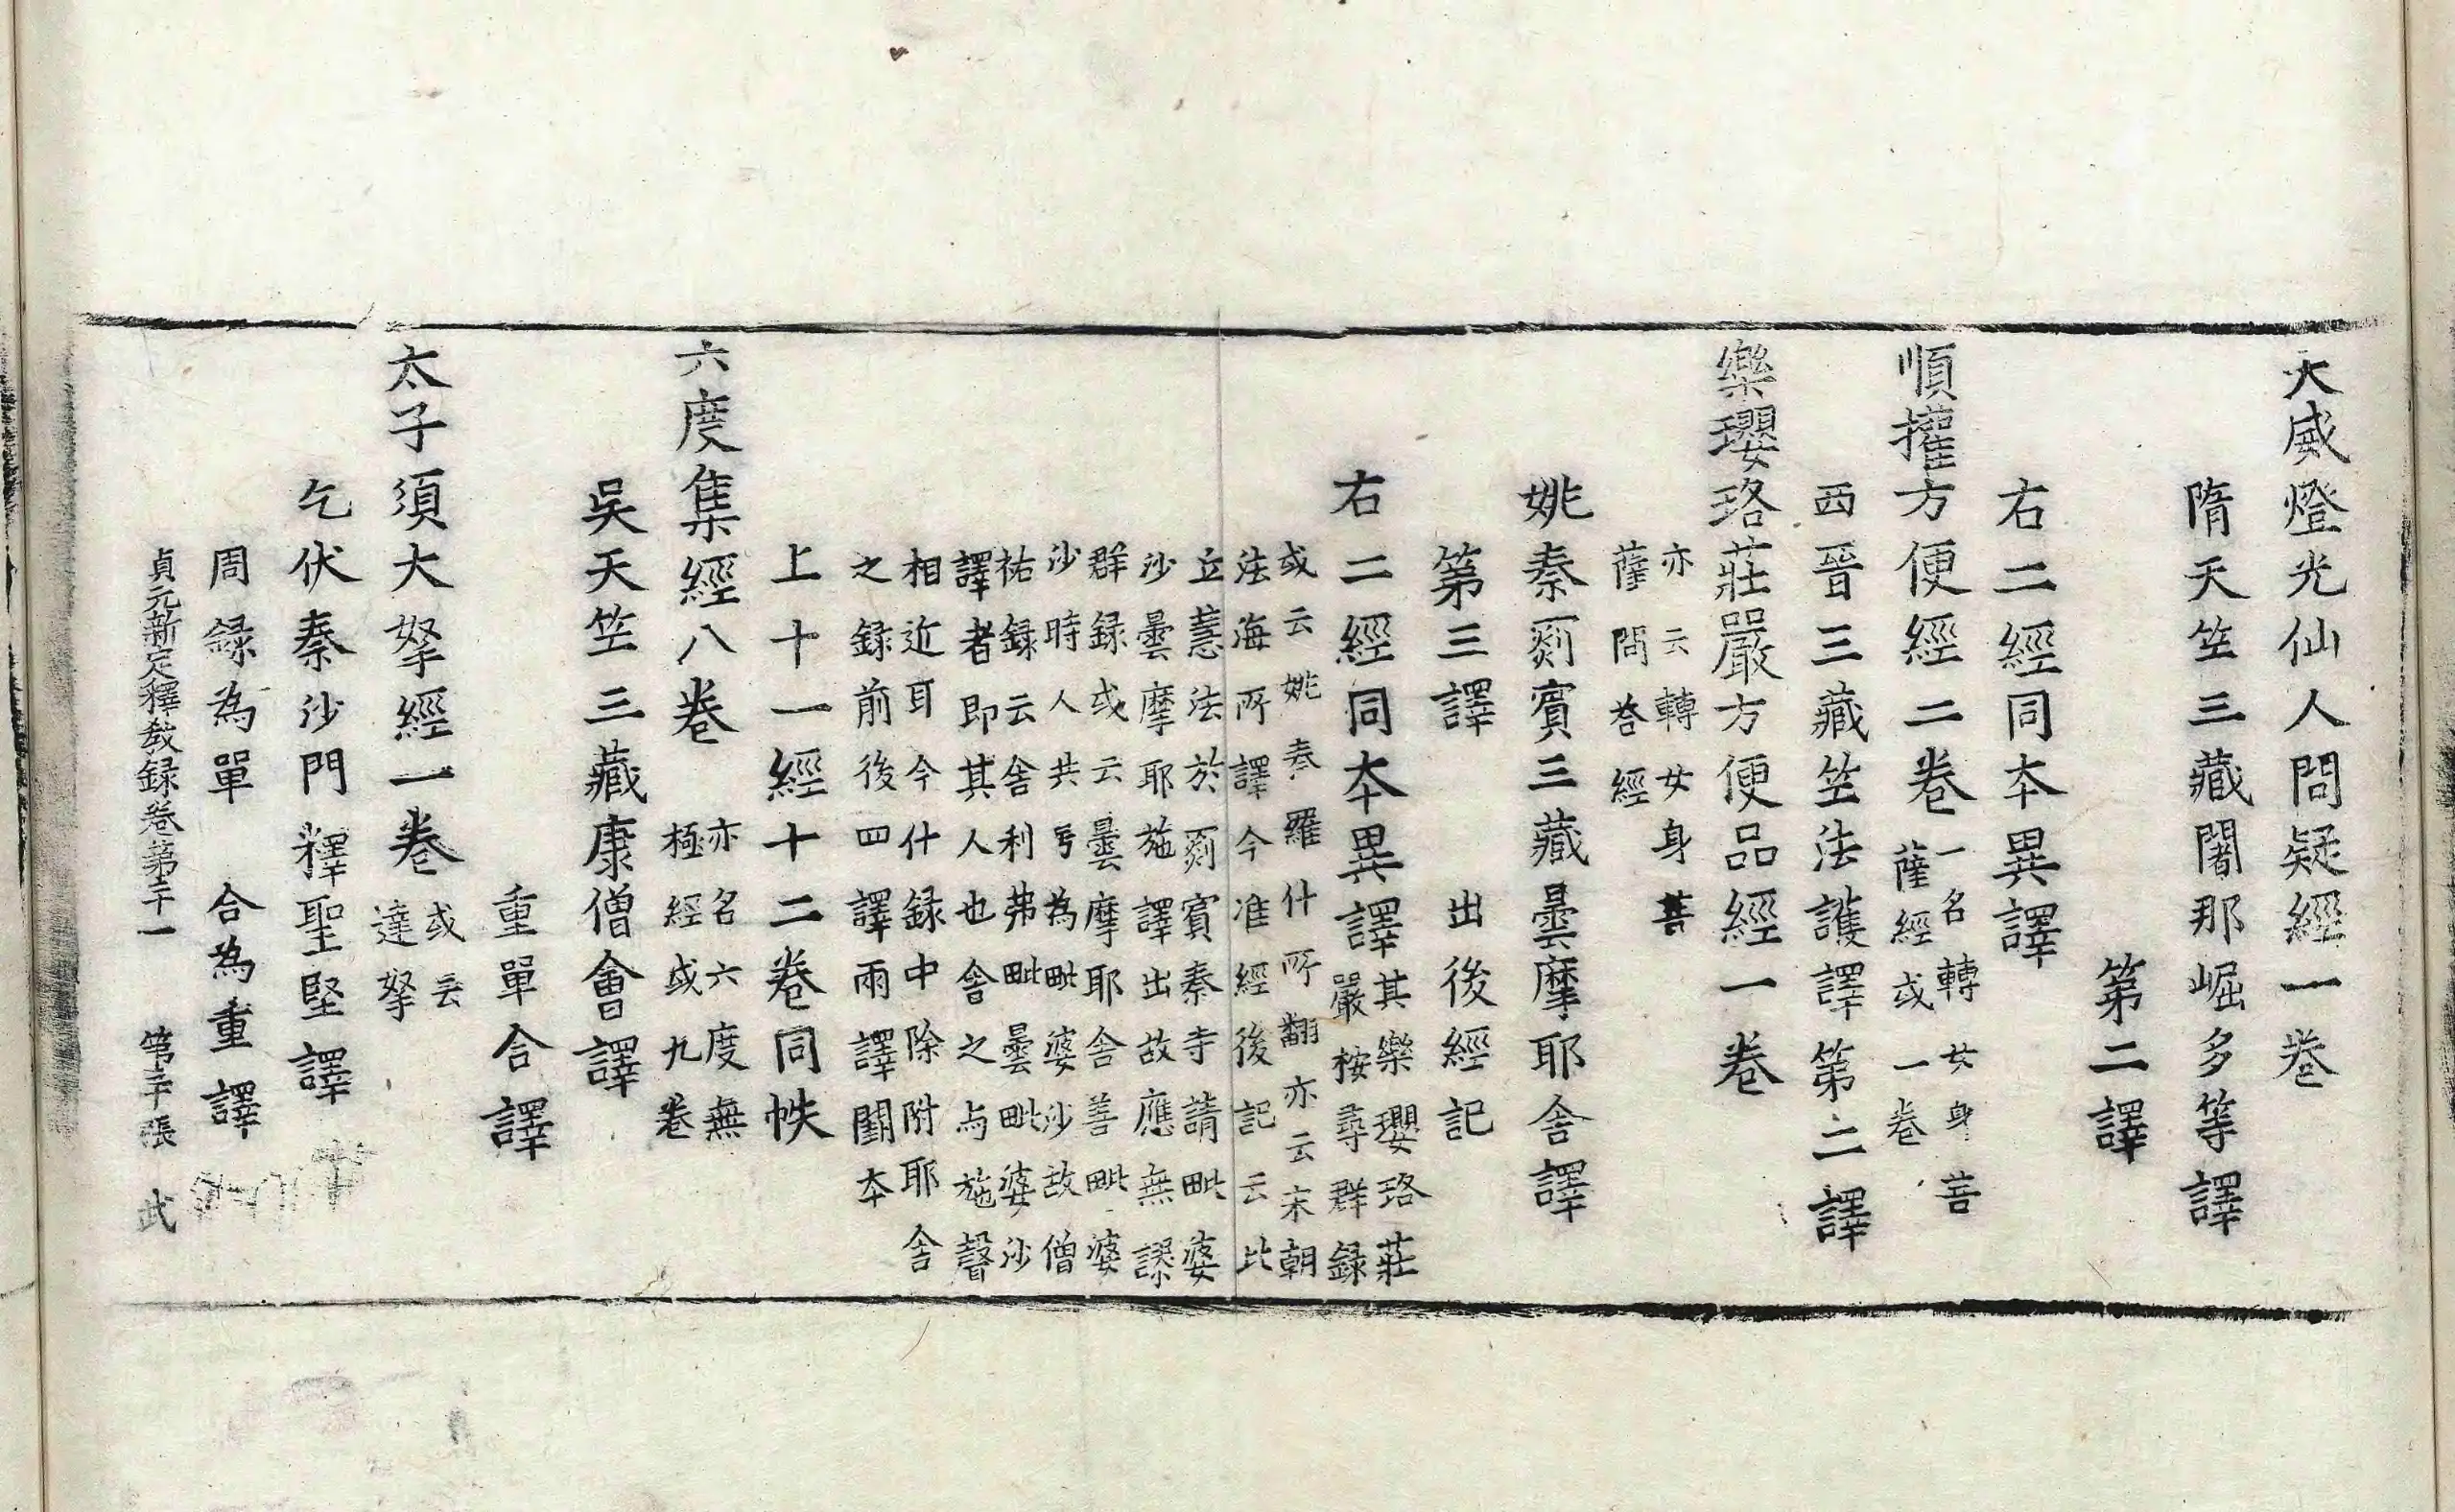 大威燈光仙人問疑經一卷
隋天竺三藏闍那崛多等譯
第二譯
右二經同本異譯
順權方便經二卷
一名轉女身菩
薩經或一卷
西晉三藏竺法護譯第二譯
樂瓔珞莊嚴方便品經一卷
亦云轉女身菩
薩問荅經
姚秦罽賓三藏曇摩耶舍譯
第三譯 出後經記
右二經同本異譯
其樂瓔珞莊
嚴桉尋群録
或云姚秦羅什所翻亦云宋朝
法海所譯今准經後記云比
丘慧法於罽賓秦寺請毗婆
沙曇摩耶施譯出故應無謬
群録或云曇摩耶舍善毗婆
沙時人共号為毗婆沙故僧
祐録云舍利弗毗曇毗婆沙
譯者即其人也舍之与施聲
相近耳今什録中除附耶舍
之録前後四譯兩譯闕本
上十一經十二卷同帙
六度集經八卷
亦名六度無
極經或九卷
吳天竺三藏康僧會譯
重單合譯
太子須大拏經一卷
或云
達拏
乞伏秦沙門釋聖堅譯
周録為單 合為重譯
貞元新定釋教録卷第二十一 第二十張 武